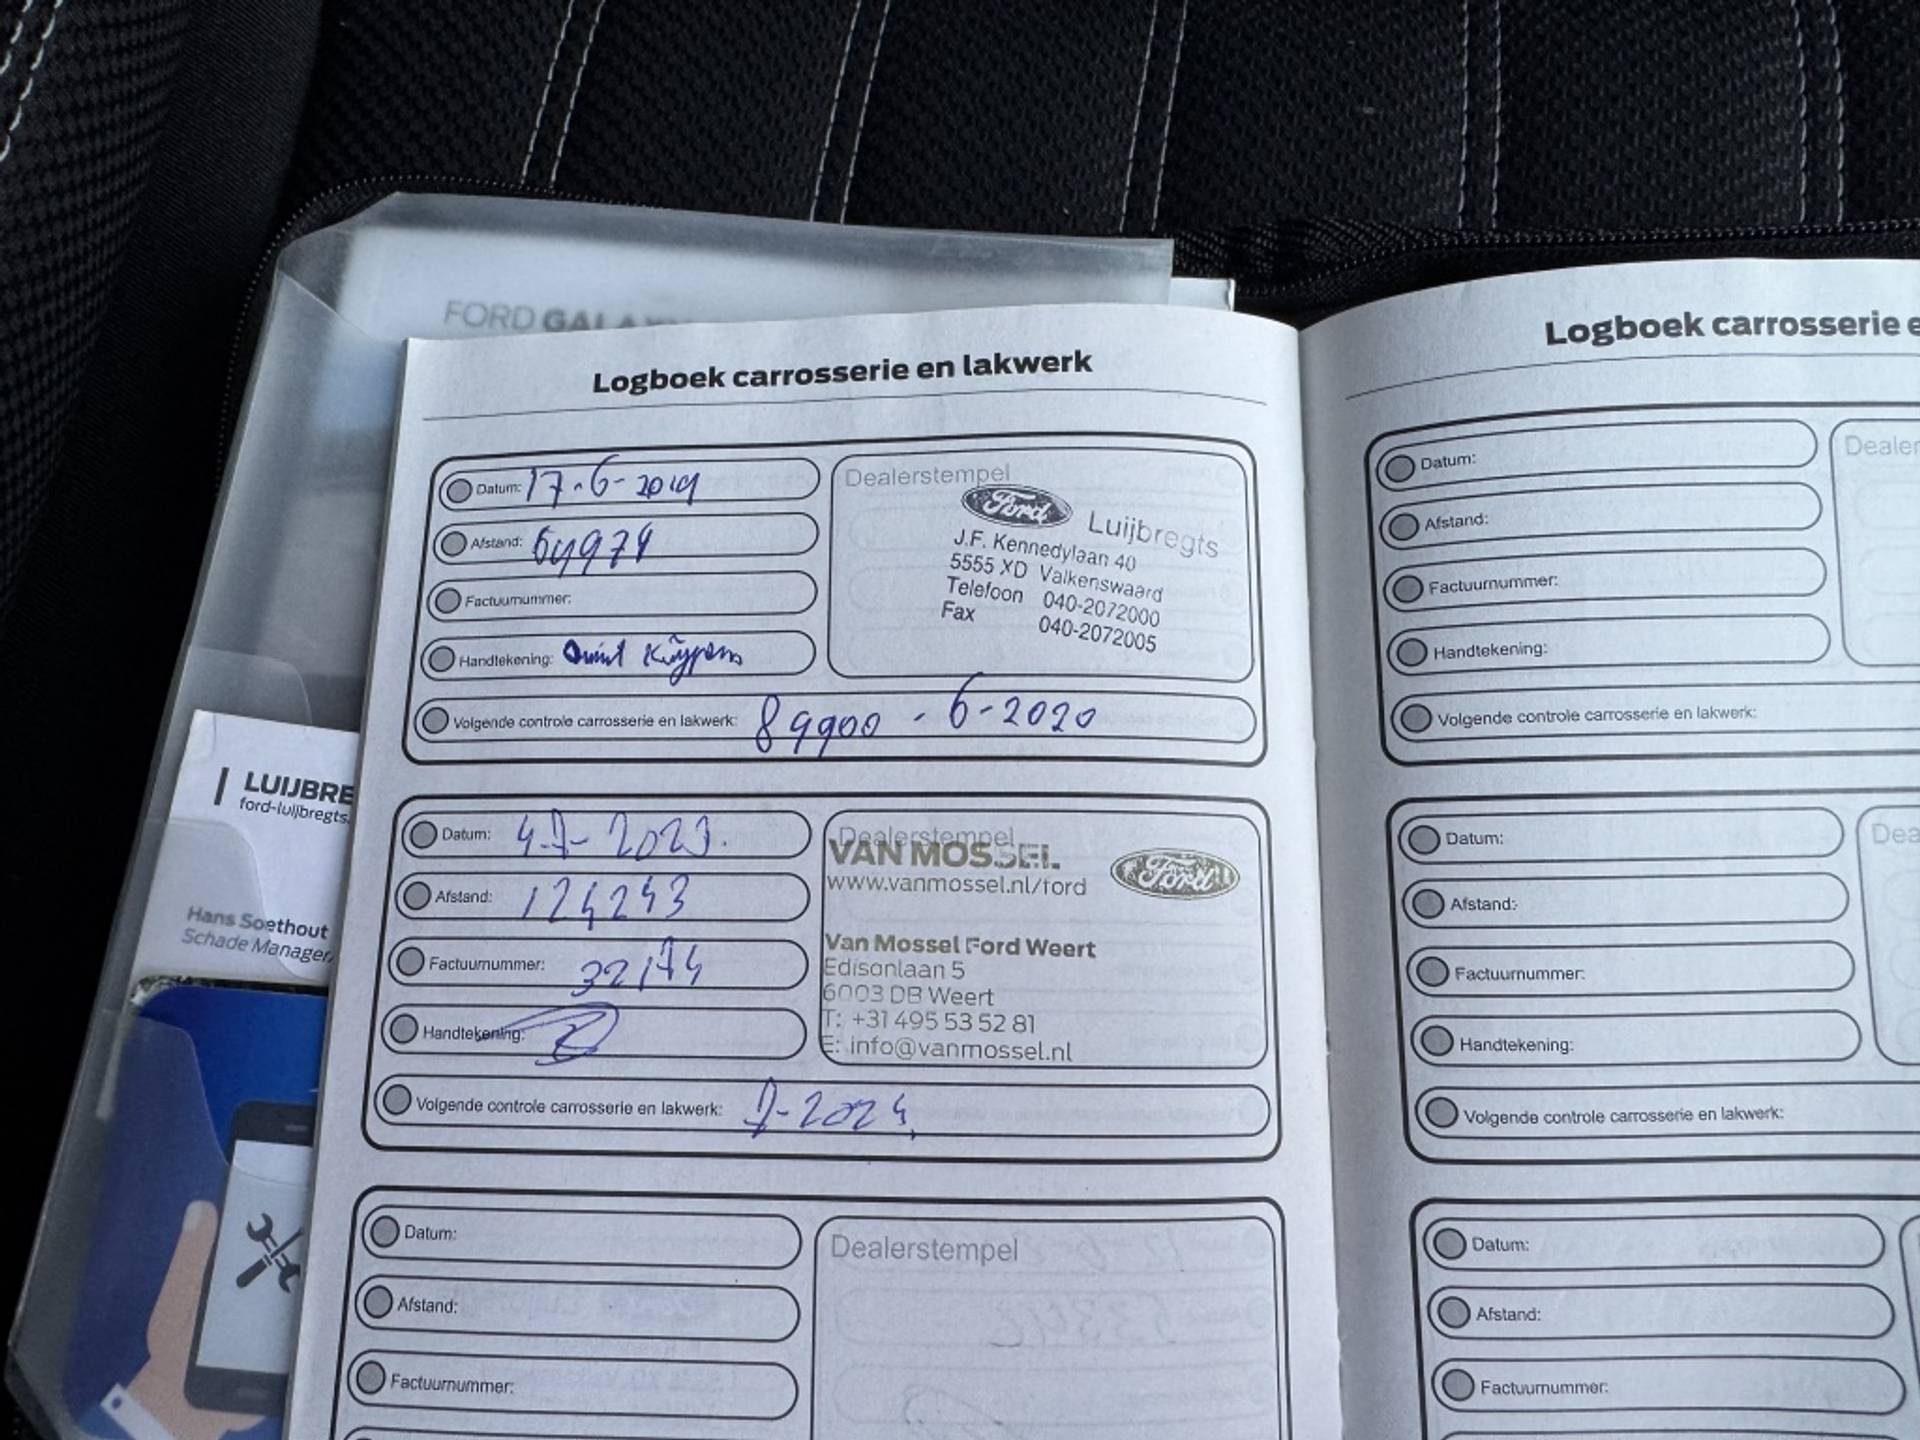 FORD GALAXY
Logboek carrosserie en lakwerk
Datum: 17-6-2019
Afstand: 64974
Factuurnummer:
Handtekening: Quint Kuijpers
Volgende controle carrosserie en lakwerk: 89900 - 6-2020
Dealerstempel
Ford Luijbregts
J.F. Kennedylaan 40
5555 XD Valkenswaard
Telefoon 040-2072000
Fax 040-2072005
Datum: 4-7-2023.
Afstand: 124243
Factuurnummer: 32174
Handtekening:
Volgende controle carrosserie en lakwerk: 7-2024
Dealerstempel
VAN MOSSEL
www.vanmossel.nl/ford
Ford
Van Mossel Ford Weert
Edisonlaan 5
6003 DB Weert
T: +31 495 53 52 81
E: info@vanmossel.nl
Datum:
Afstand:
Factuurnummer:
Dealerstempel
LUIJBRE
ford-luijbregts.
Hans Soethout
Schade Manager
Logboek carrosserie e
Datum:
Afstand:
Factuurnummer:
Handtekening:
Volgende controle carrosserie en lakwerk:
Dealer
Datum:
Afstand:
Factuurnummer:
Handtekening:
Volgende controle carrosserie en lakwerk:
Dea
Datum:
Afstand:
Factuurnummer: